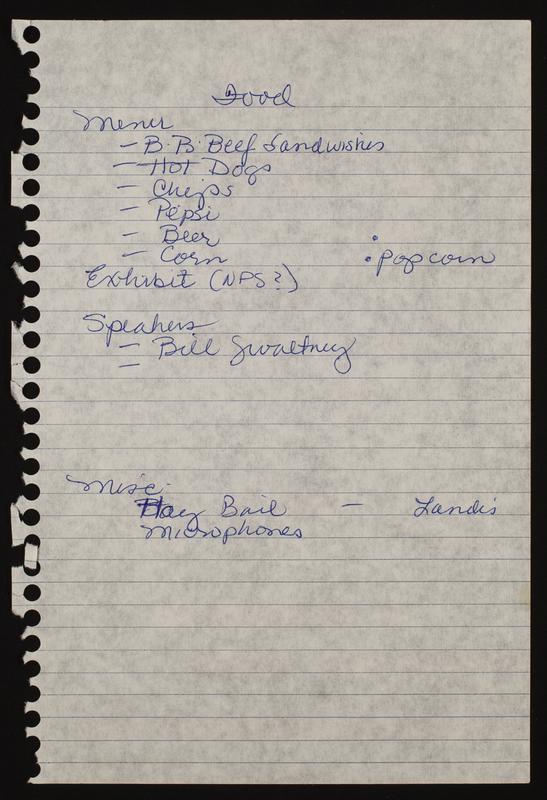 Food
Menu
- B.B. Beef Sandwishes
- Hot Dogs
- Chips
- Pepsi
- Beer
- Corn
• popcorn
Exhibit (NPS?)
Speakers
- Bill Gwaltney
-
Misc.
Hay Bail - Landis
Microphones